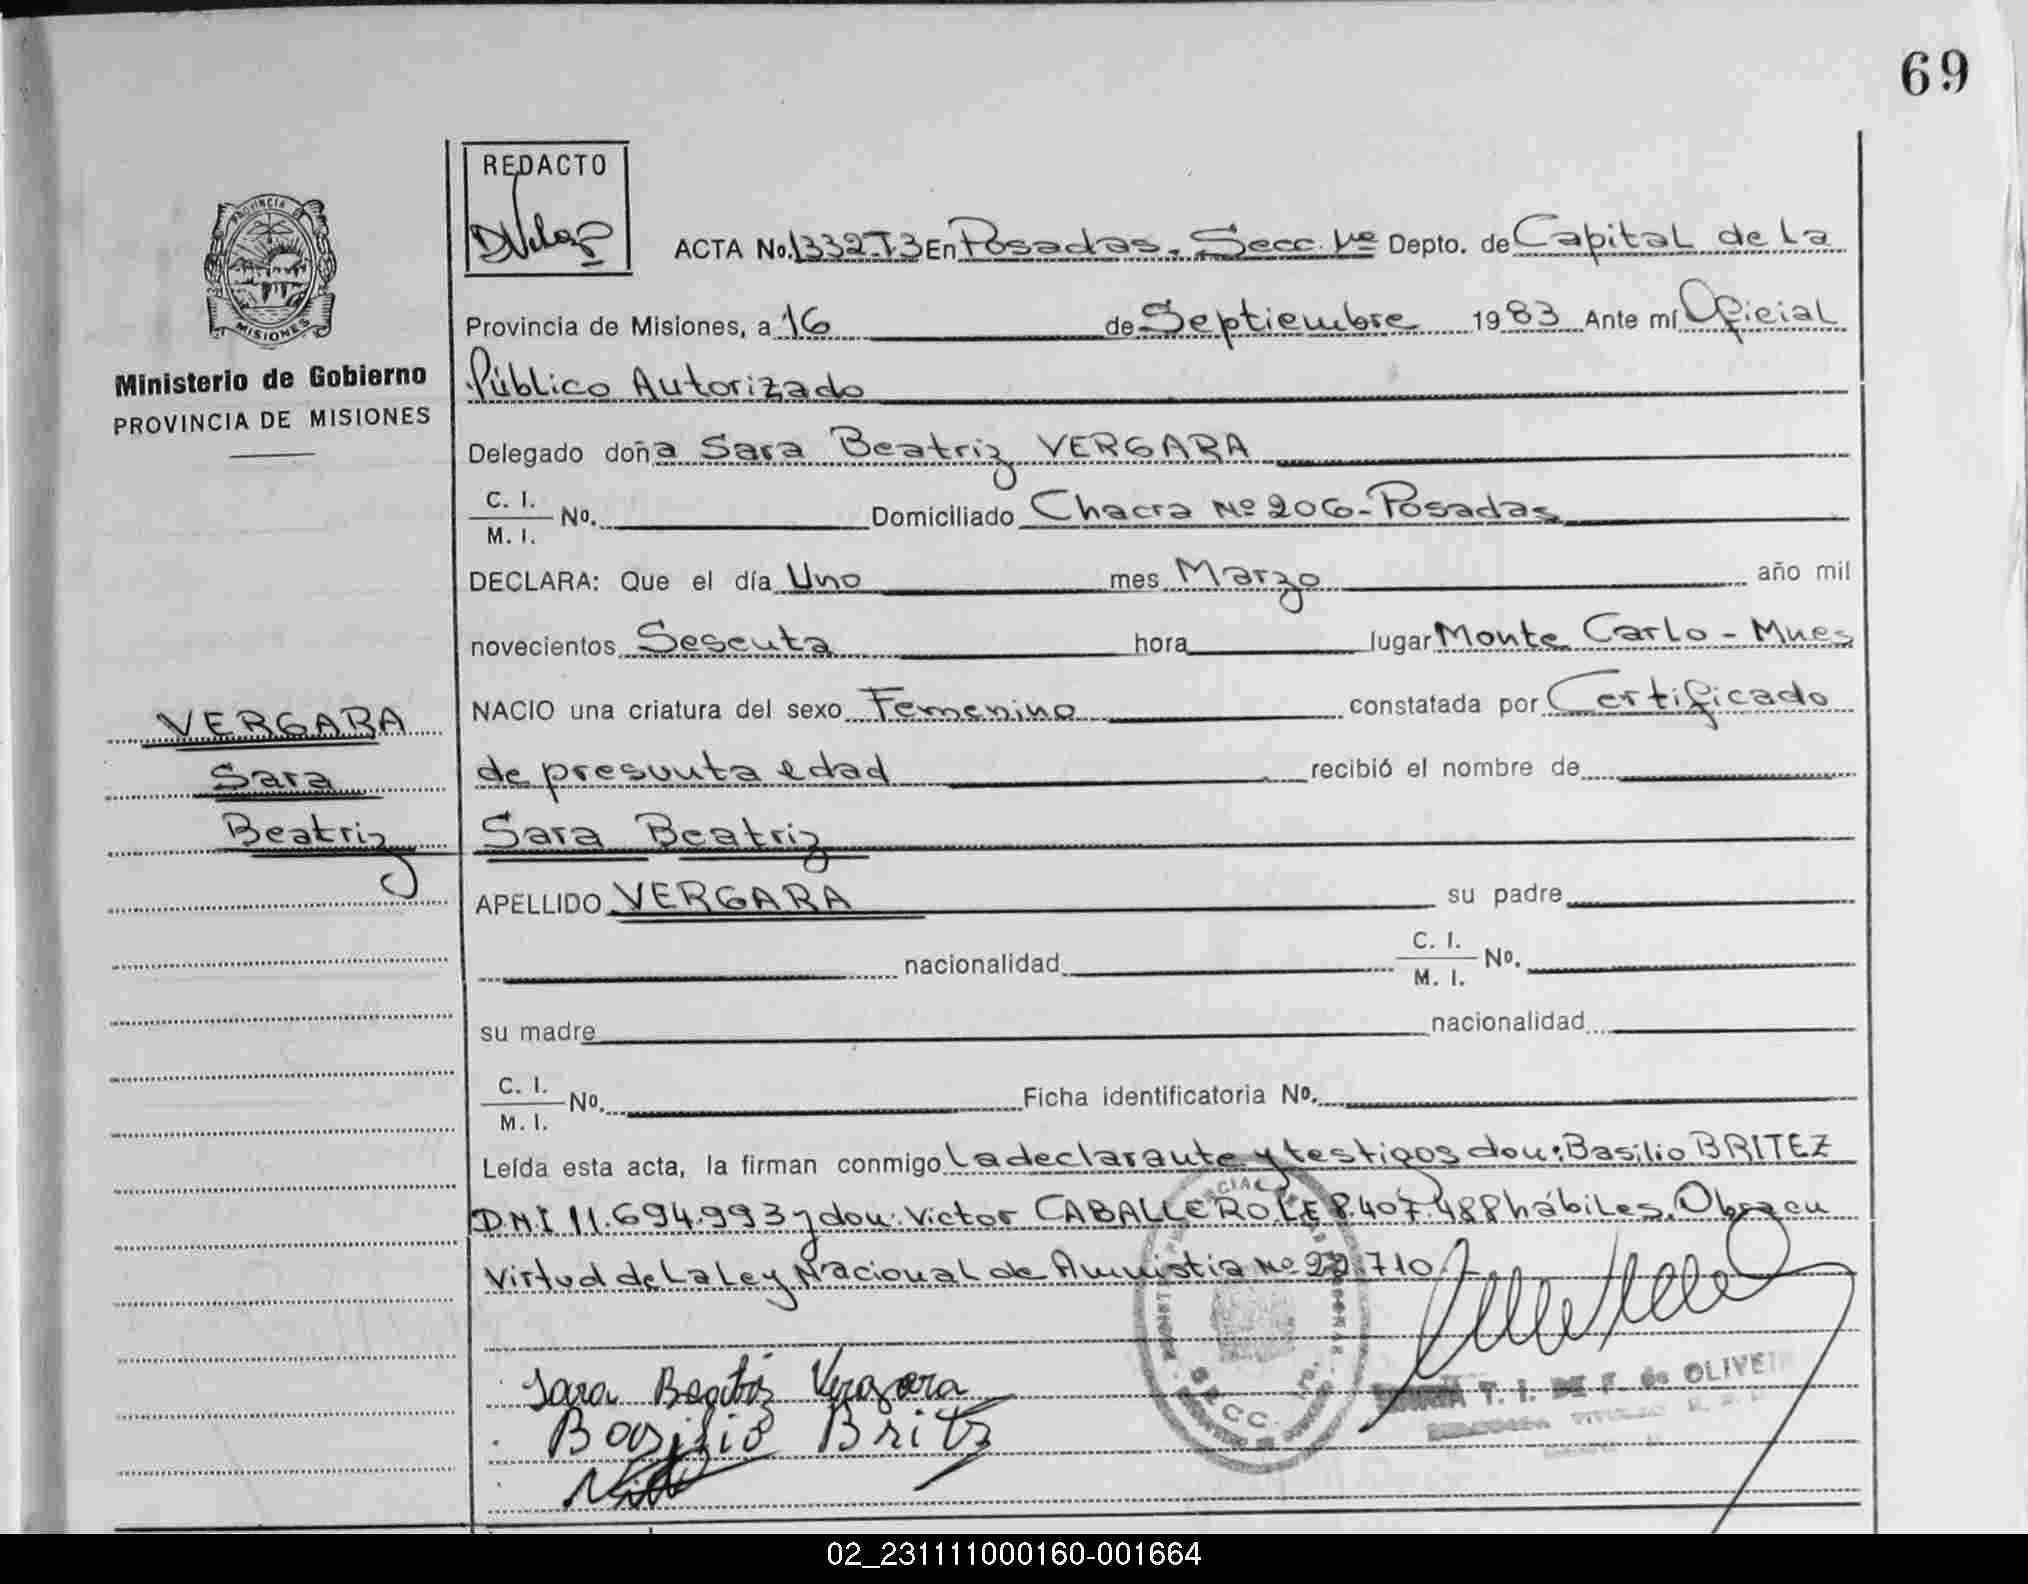 69
REDACTO
PROVINCIA
MISIONES
Ministerio de Gobierno
PROVINCIA DE MISIONES
ACTA No. 1332T3 En Posadas, Secc. 1ª Depto. de Capital de La
Provincia de Misiones, a 16 de Septiembre 1983 Ante mí Oficial
Público Autorizado
Delegado doña Sara Beatriz VERGARA
C. I.
M. I. Nº. Domiciliado Chacra Nº 206 - Posadas
DECLARA: Que el día Uno mes Marzo año mil
novecientos Sesenta hora lugar Monte Carlo - Mnes
NACIO una criatura del sexo Femenino constatada por Certificado
de presunta edad recibió el nombre de
Sara Beatriz
APELLIDO VERGARA su padre
nacionalidad C. I.
M. I. Nº.
su madre nacionalidad
C. I.
M. I. Nº. Ficha identificatoria Nº.
Leída esta acta, la firman conmigo La declarante y testigos don: Basilio BRITEZ
DNI 11.694.993 y don: Victor CABALLERO LE 8.407.488 hábiles. Obra en
Virtud de La Ley Nacional de Amnistia Nº 22.710
VERGARA
Sara
Beatriz
Sara Beatriz Vergara
Basilio Britz
SECC.
T. I. DE F. de OLIVEIR
02_231111000160-001664